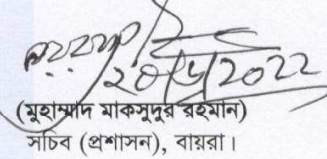 ২০/৬/2022
(মুহাম্মাদ মাকসুদুর রহমান)
সচিব (প্রশাসন), বায়রা।